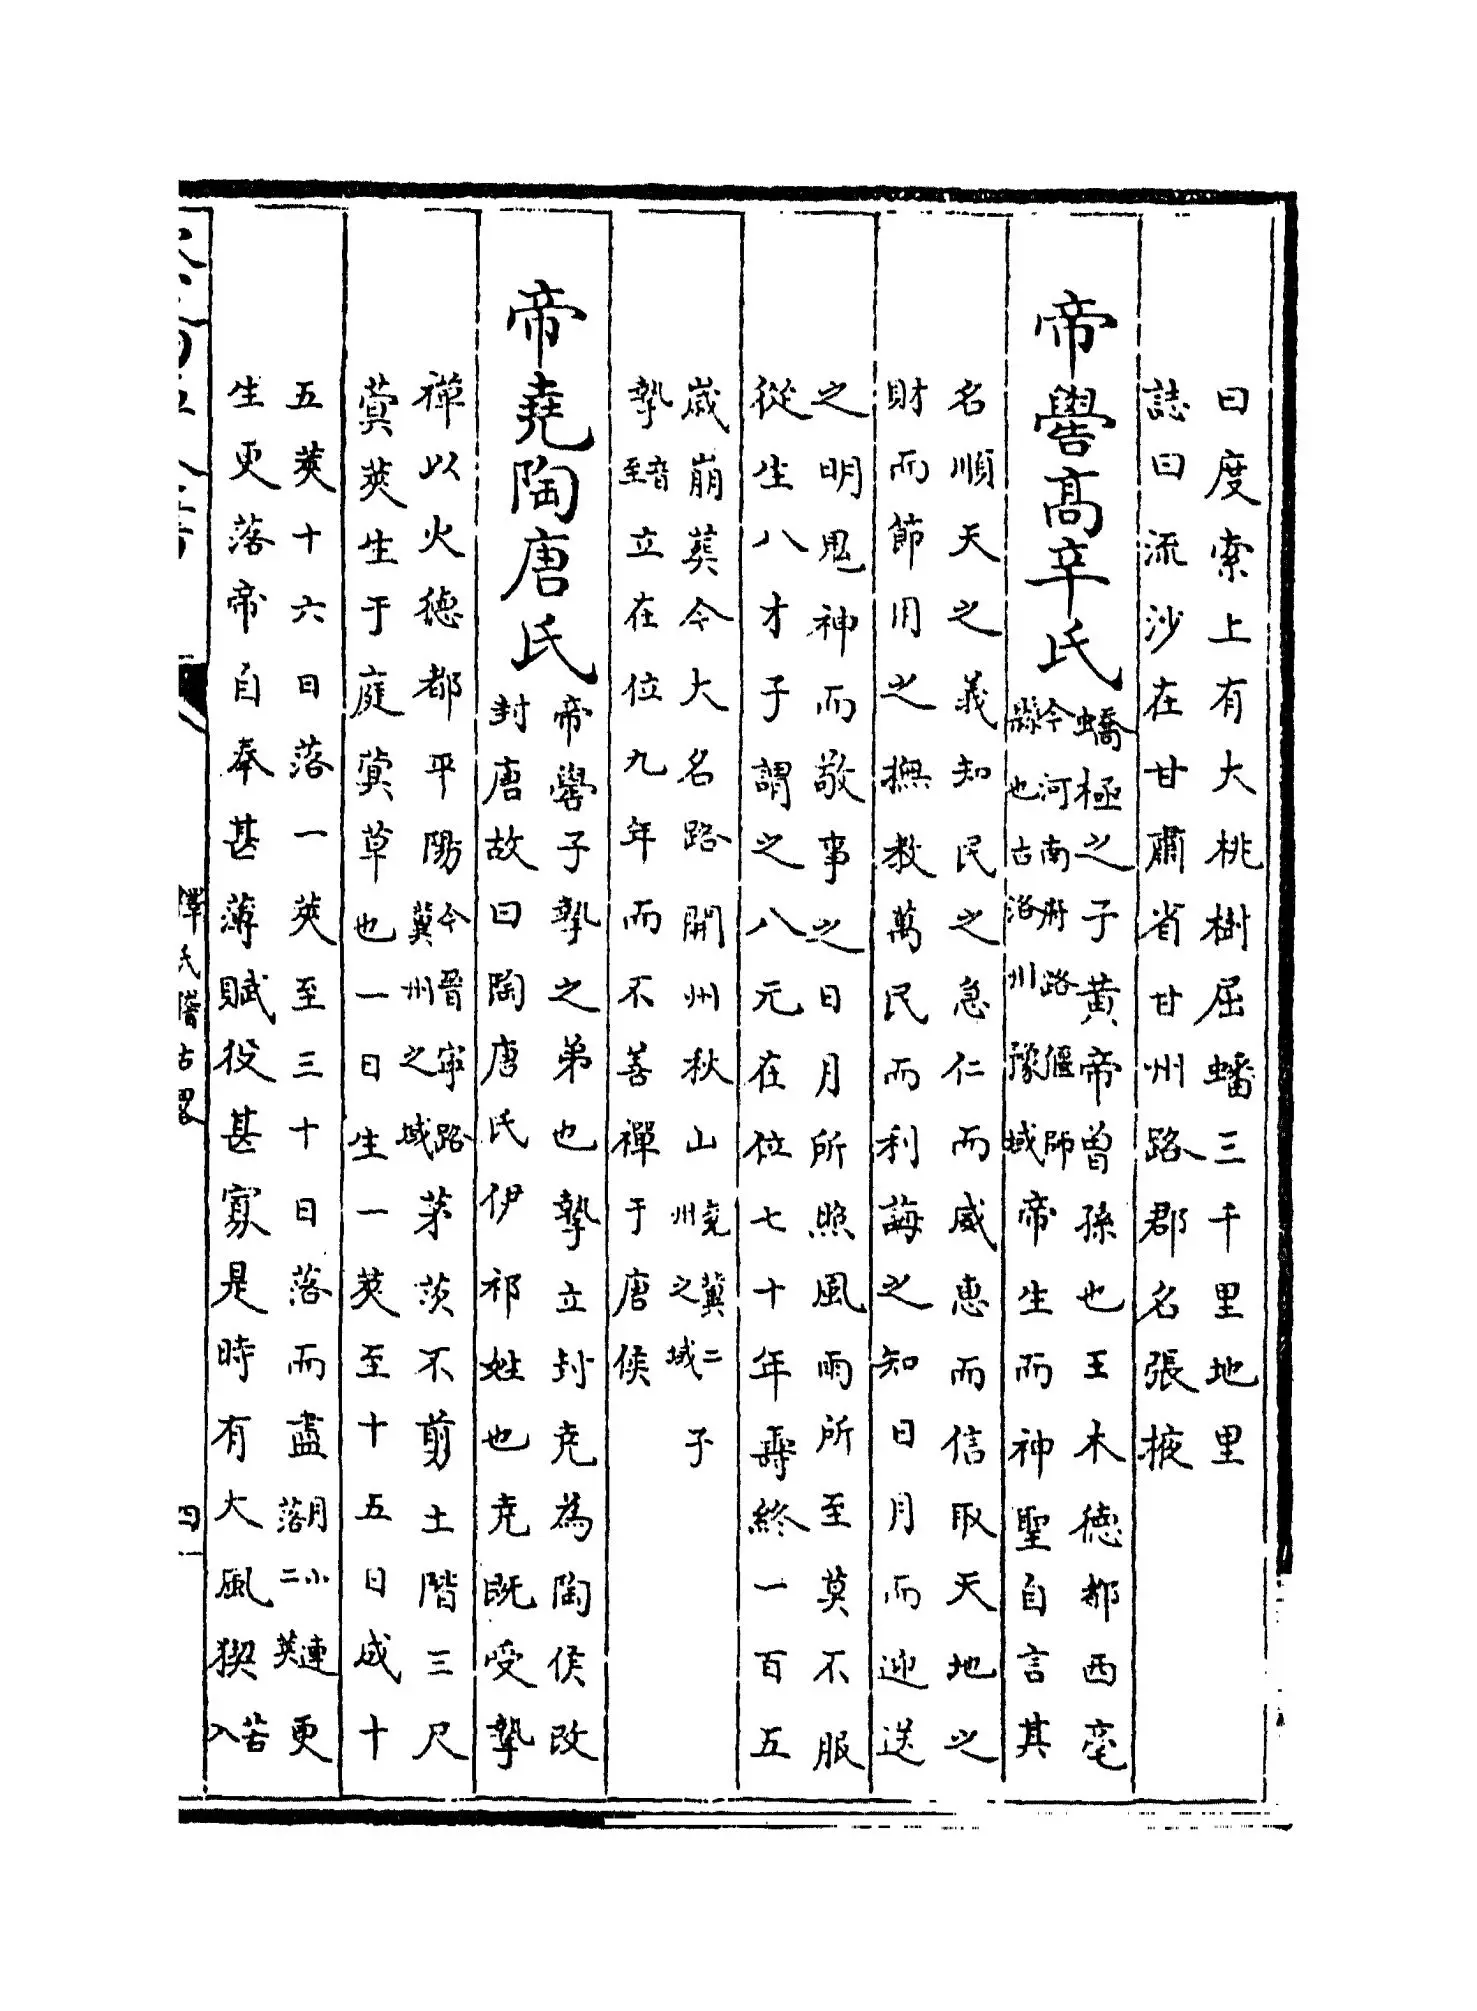 曰度索上有大桃樹屈蟠三千里地里
誌曰流沙在甘肅省甘州路郡名張掖
帝嚳高辛氏
蟜極之子黄帝曾孫也王木德都西亳
今河南府路偃師
縣也古洛州豫域
帝生而神聖自言其
名順天之義知民之急仁而威惠而信取天地之
財而節用之撫教萬民而利誨之知日月而迎送
之明鬼神而敬事之日月所照風雨所至莫不服
從生八才子謂之八元在位七十年壽終一百五
歲崩葬今大名路開州秋山
堯冀二
州之域
子
摯
音
至
立在位九年而不善禪于唐侯
帝堯陶唐氏
帝嚳子摯之弟也摯立封堯為陶侯改
封唐故曰陶唐氏伊祁姓也堯既受摯
禪以火德都平陽
今晉寜路
冀州之域
茅茨不剪土階三尺
蓂莢生于庭蓂草也一日生一莢至十五日成十
五莢十六日落一莢至三十日落而盡
月小連
落二莢
更
生更落帝自奉甚薄賦役甚寡是時有大風猰
苦
入
譯氏階古畧
四